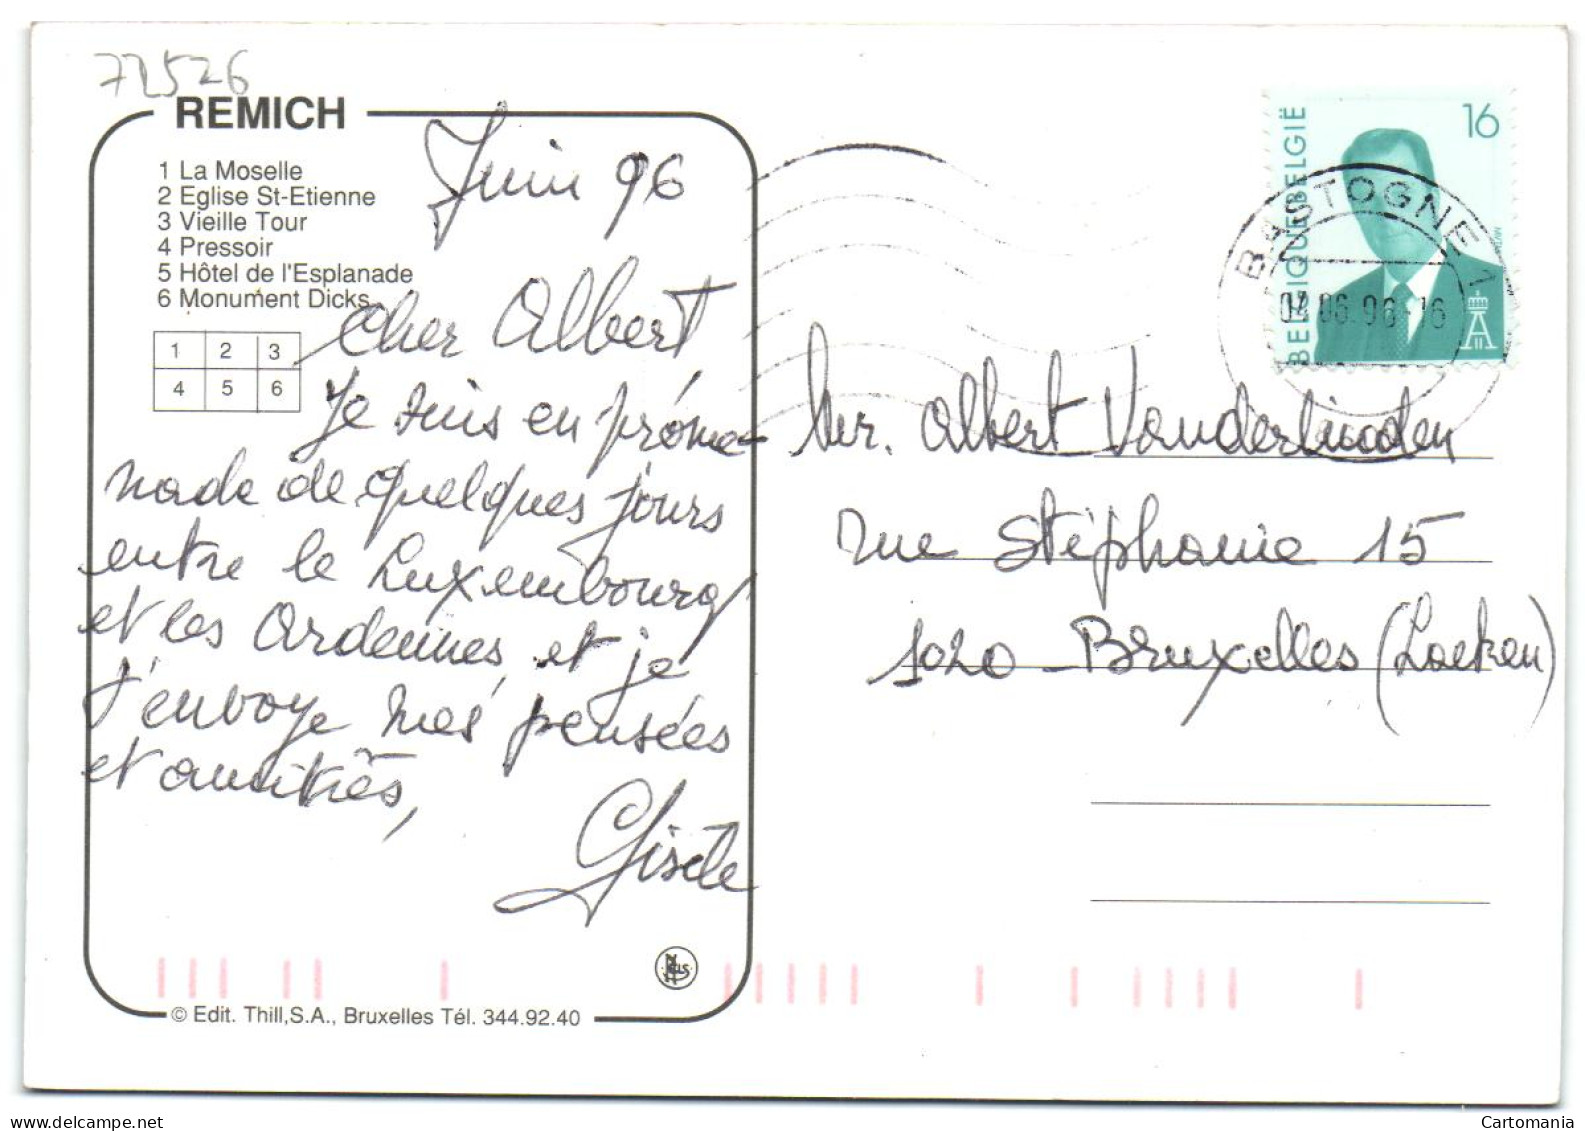 72526
REMICH
1 La Moselle
2 Eglise St-Etienne
3 Vieille Tour
4 Pressoir
5 Hôtel de l'Esplanade
6 Monument Dicks
1 2 3
4 5 6
Juin 96
Cher Albert
Je suis en prome-
nade de quelques jours
entre le Luxembourg
et les Ardennes, et je
t'envoye mes pensées
et amitiés,
Gisèle
© Edit. Thill,S.A., Bruxelles Tél. 344.92.40
16
BELGIQUE BELGIË
BASTOGNE 1
06.96-16
Mr. Albert Vanderlinden
rue Stéphanie 15
1020 - Bruxelles (Laeken)
Cartomania